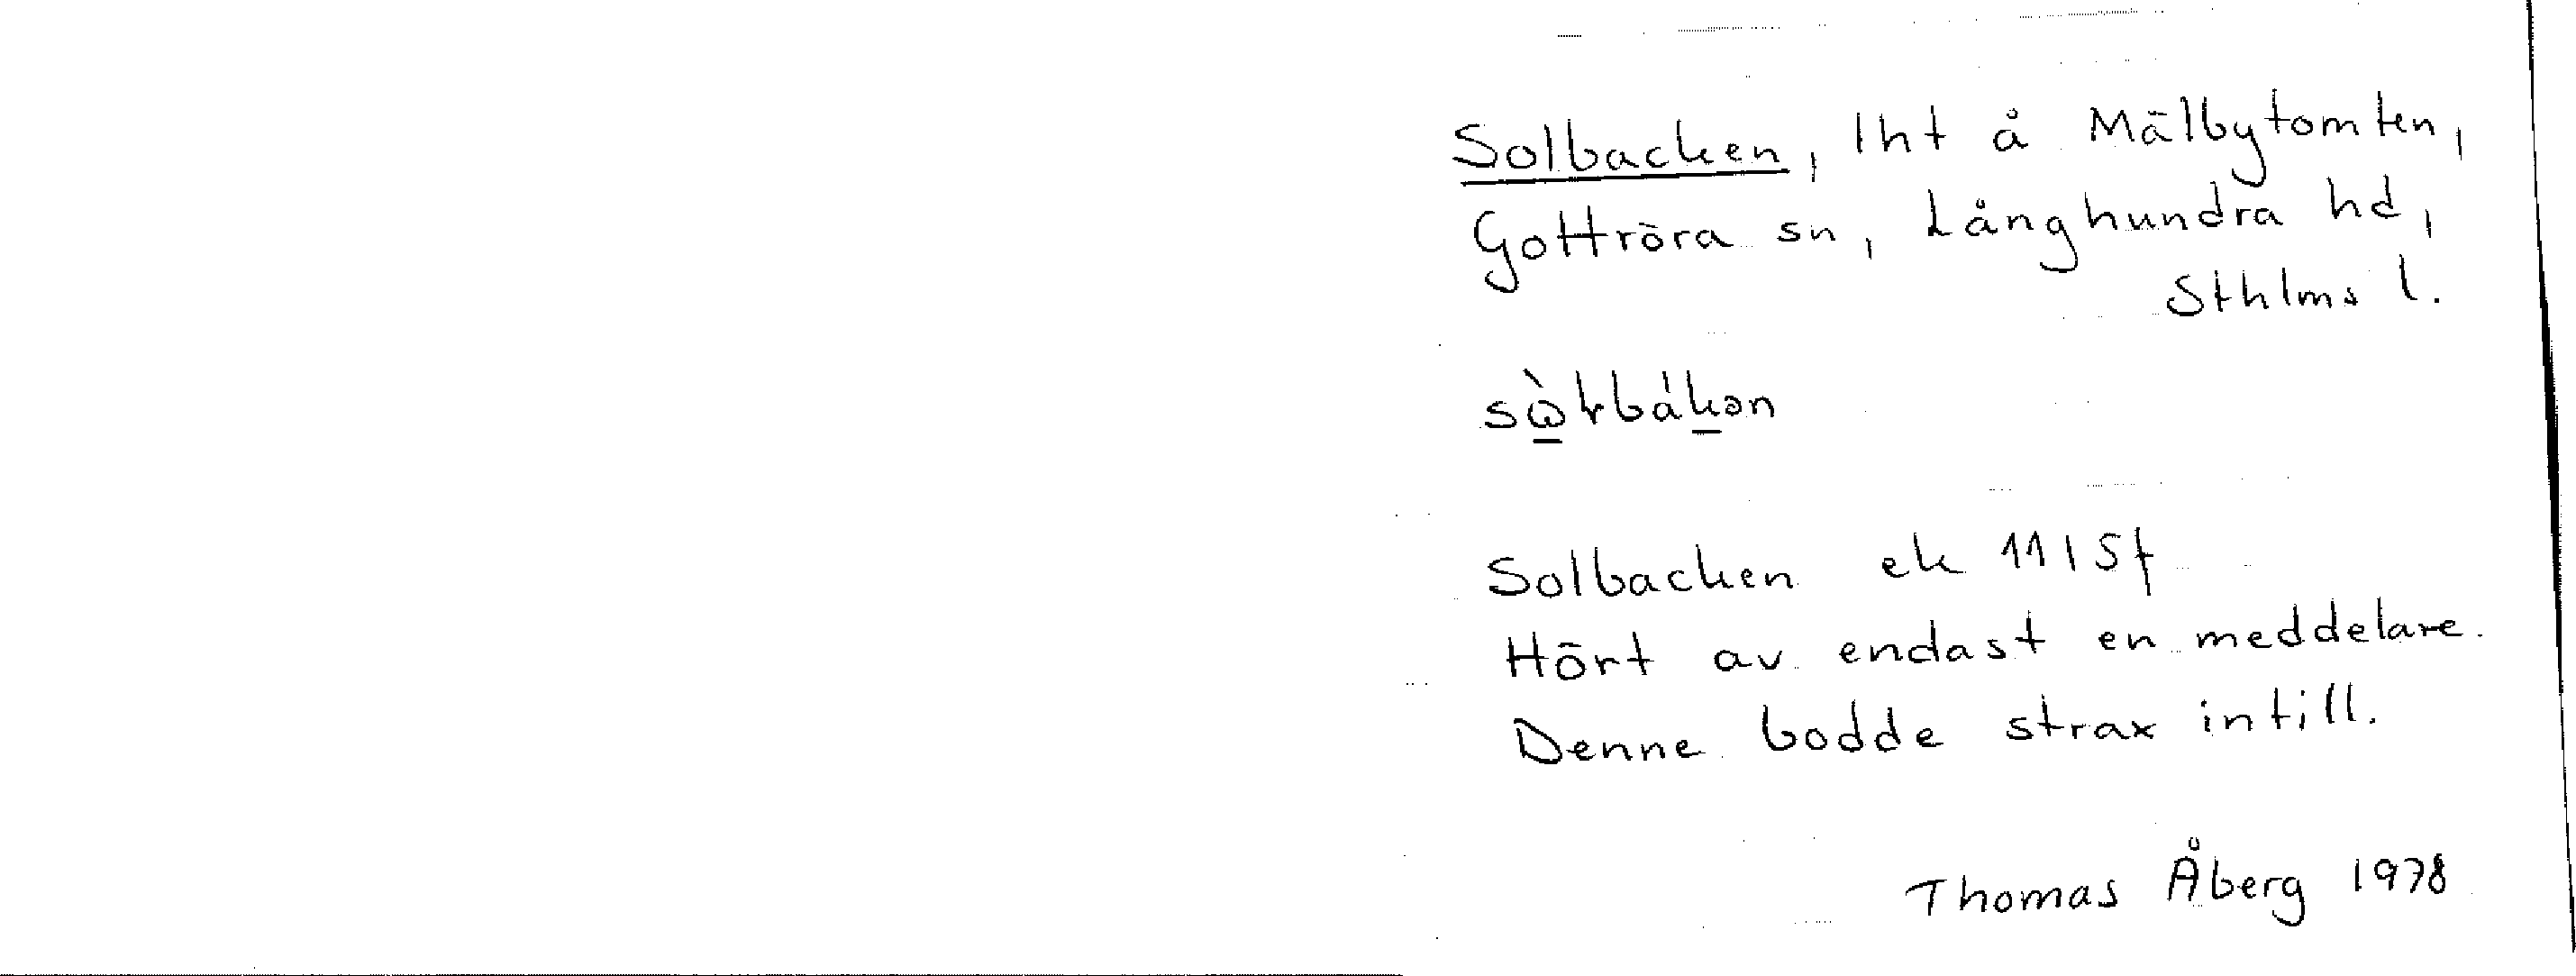 Solbacken, lht å Mälbytomten,
Gottröra sn, Långhundra hd,
Sthlms l.
Solbacken ek 11I5f
Hört av endast en meddelare.
Denne bodde strax intill.
Thomas Åberg 1978